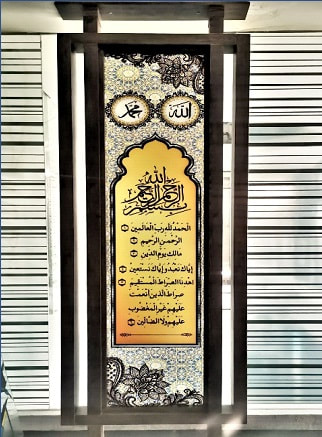 الله
محمد
بسم الله الرحمن الرحيم
الحمد لله رب العالمين
الرحمن الرحيم
مالك يوم الدين
إياك نعبد وإياك نستعين
اهدنا الصراط المستقيم
صراط الذين أنعمت
عليهم غير المغضوب
عليهم ولا الضالين